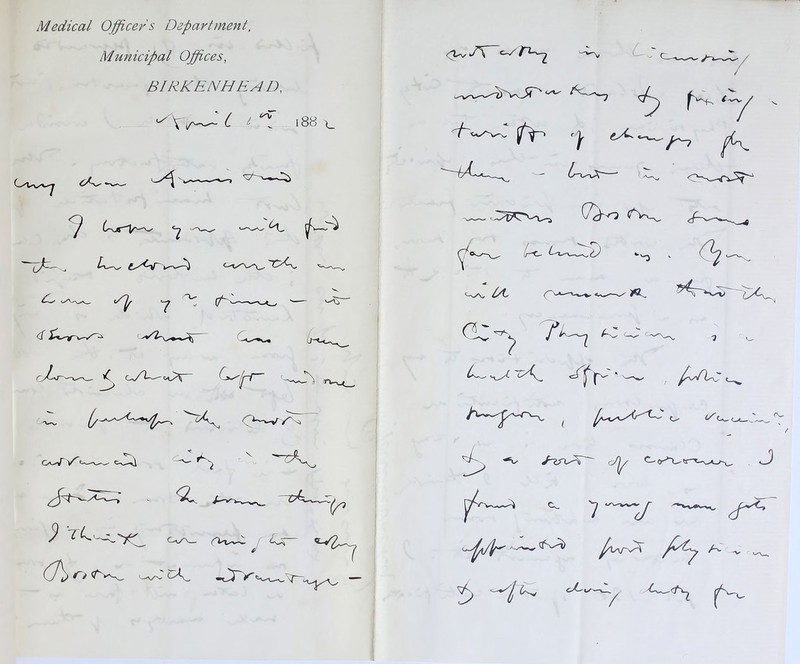 Medical Officer's Department,
Municipal Offices,
BIRKENHEAD,
April 1882
my dear
I hope you will find
the inclosed worth an
hour of yr time — it
shows what has been
done & what left undone
in perhaps the most
advanced city in the
States. In some things
I think we might copy
Boston with advantage —
in licensing
& fixing
of charges for
them — but in most
matters Boston seems
far behind us. You
will remark that the
City Physician is
health officer, police
surgeon, public vaccinr,
& a sort of coroner. I
found a young man gets
appointed port physician
& after doing duty for